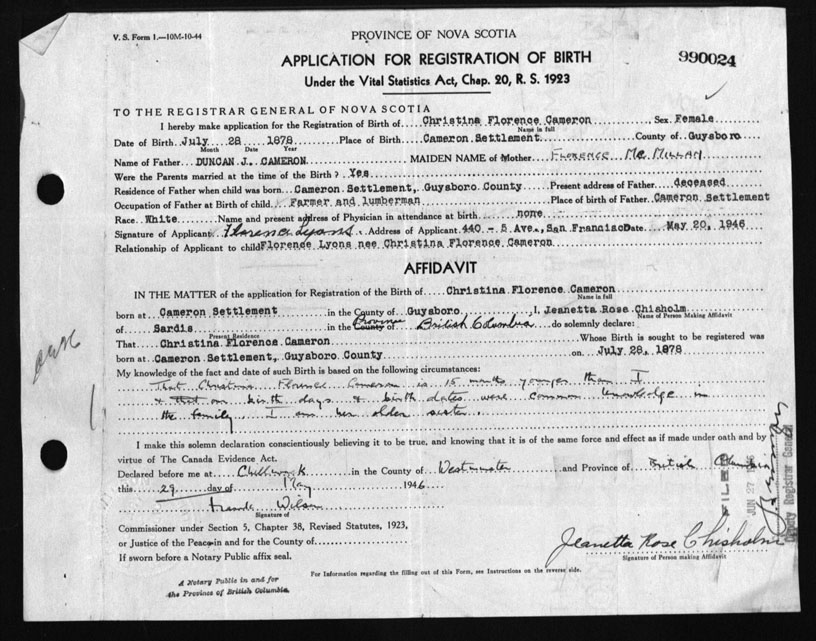 V. S. Form 1.—10M-10-44
PROVINCE OF NOVA SCOTIA
APPLICATION FOR REGISTRATION OF BIRTH
990024
Under the Vital Statistics Act, Chap. 20, R. S. 1923
TO THE REGISTRAR GENERAL OF NOVA SCOTIA
I hereby make application for the Registration of Birth of Christina Florence Cameron, Sex Female
Name in full
Date of Birth July 28 1878 Place of Birth Cameron Settlement County of Guysboro
Month Date Year
Name of Father DUNCAN J. CAMERON MAIDEN NAME of Mother FLORENCE McMILLAN
Were the Parents married at the time of the Birth? Yes
Residence of Father when child was born Cameron Settlement, Guysboro County Present address of Father deceased
Occupation of Father at Birth of child Farmer and lumberman Place of birth of Father Cameron Settlement
Race White Name and present address of Physician in attendance at birth none
Signature of Applicant Florence Lyons Address of Applicant 440 - 5 Ave., San Francisco Date May 20, 1946
Relationship of Applicant to child Florence Lyons nee Christina Florence Cameron
AFFIDAVIT
IN THE MATTER of the application for Registration of the Birth of Christina Florence Cameron
Name in full
born at Cameron Settlement in the County of Guysboro, I, Jeanetta Rose Chisholm
Name of Person Making Affidavit
of Sardis in the County Province of British Columbia do solemnly declare:
Present Residence
That Christina Florence Cameron Whose Birth is sought to be registered was
born at Cameron Settlement, Guysboro County on July 28, 1878
My knowledge of the fact and date of such Birth is based on the following circumstances:
That Christina Florence Cameron is 15 months younger than I
& that our birth days & birth dates were common knowledge in
the family. I am her older sister.
I make this solemn declaration conscientiously believing it to be true, and knowing that it is of the same force and effect as if made under oath and by
virtue of The Canada Evidence Act.
Declared before me at Chilliwack in the County of Westminster and Province of British Columbia
this 29 day of May 1946
Wilson
Signature of
Commissioner under Section 5, Chapter 38, Revised Statutes, 1923,
or Justice of the Peace in and for the County of
If sworn before a Notary Public affix seal.
Jeanetta Rose Chisholm
Signature of Person making Affidavit
For Information regarding the filling out of this Form, see Instructions on the reverse side.
A Notary Public in and for
the Province of British Columbia.
FILED
JUN 27
Deputy Registrar General